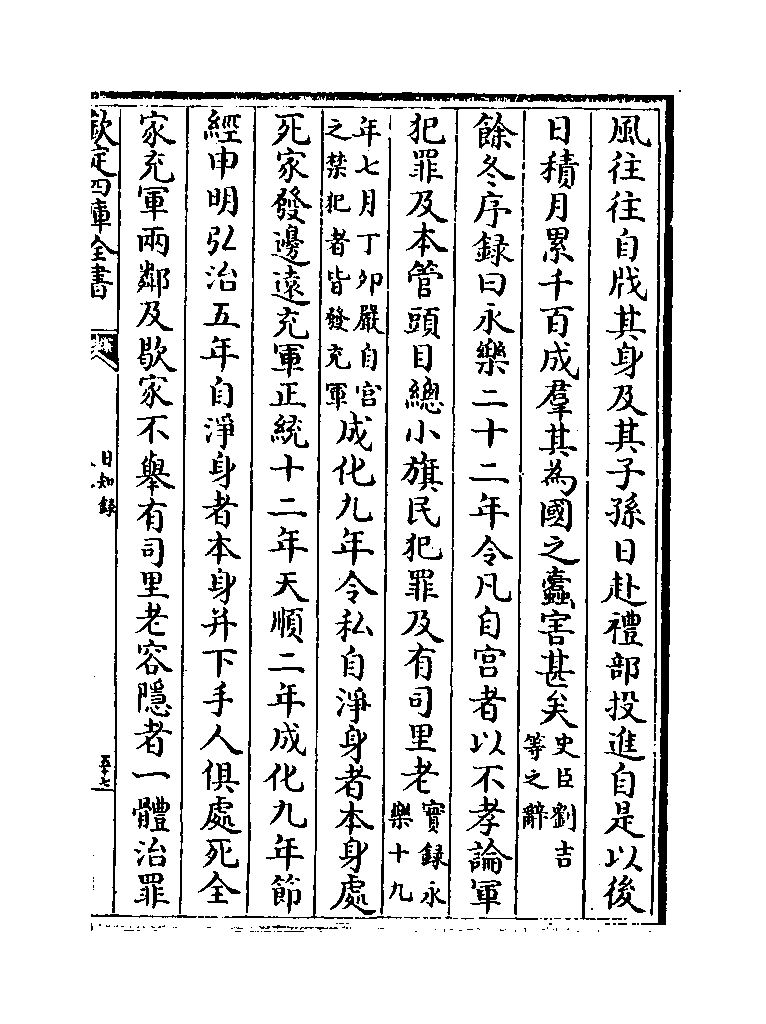 風往往自戕其身及其子孫日赴禮部投進自是以後
日積月累千百成羣其為國之蠹害甚矣史臣劉吉等之辭
餘冬序録曰永樂二十二年令凡自宫者以不孝論軍
犯罪及本管頭目總小旗民犯罪及有司里老實録永樂十九
年七月丁卯嚴自宫之禁犯者皆發充軍成化九年令私自淨身者本身處
死家發邊遠充軍正統十二年天順二年成化九年節
經申明弘治五年自淨身者本身并下手人俱處死全
家充軍兩鄰及歇家不舉有司里老容隱者一體治罪
欽定四庫全書
日知録
五十七